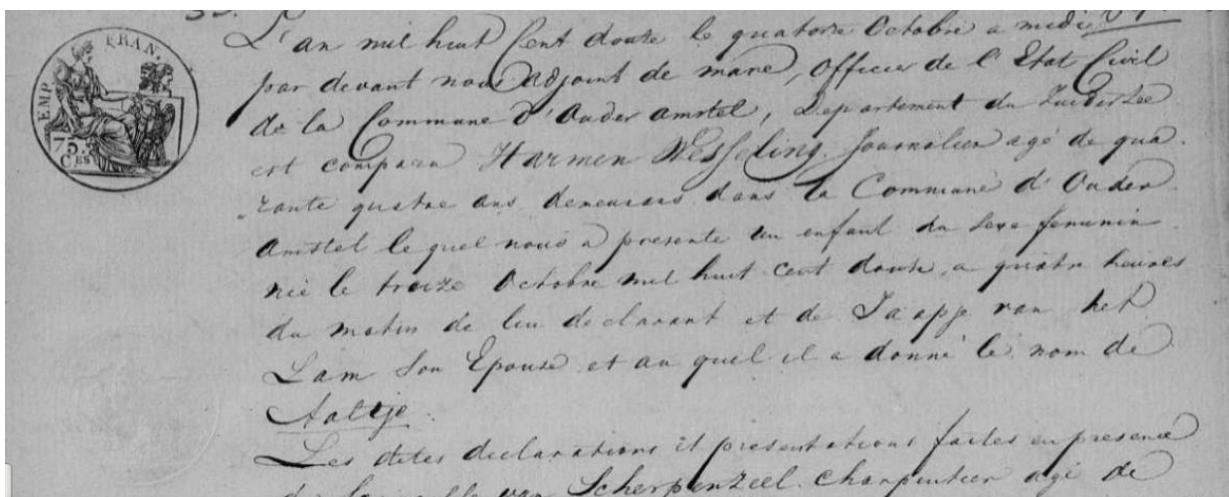 EMP. FRAN.
75.
C.ES
L'an mil huit Cent douze le quatorze Octobre a midi
par devant nous adjoint de maire, Officier de l'Etat Civil
de la Commune d'Ouder amstel, Departement du Zuiderzee
est comparu Harmen Wesseling Journalier agé de qua
rante quatre ans demeurant dans la Commune d'Ouder
Amstel le quel nous a presenté un enfant du sexe feminin
née le treize Octobre mil huit cent douze, a quatre heures
du matin de lui declarant et de Jaapje van het
Lam Son Epouse et au quel il a donné le nom de
Aaltje.
Les dites declarations et presentations faites en presence
van Scherpenzeel Charpentier agé de